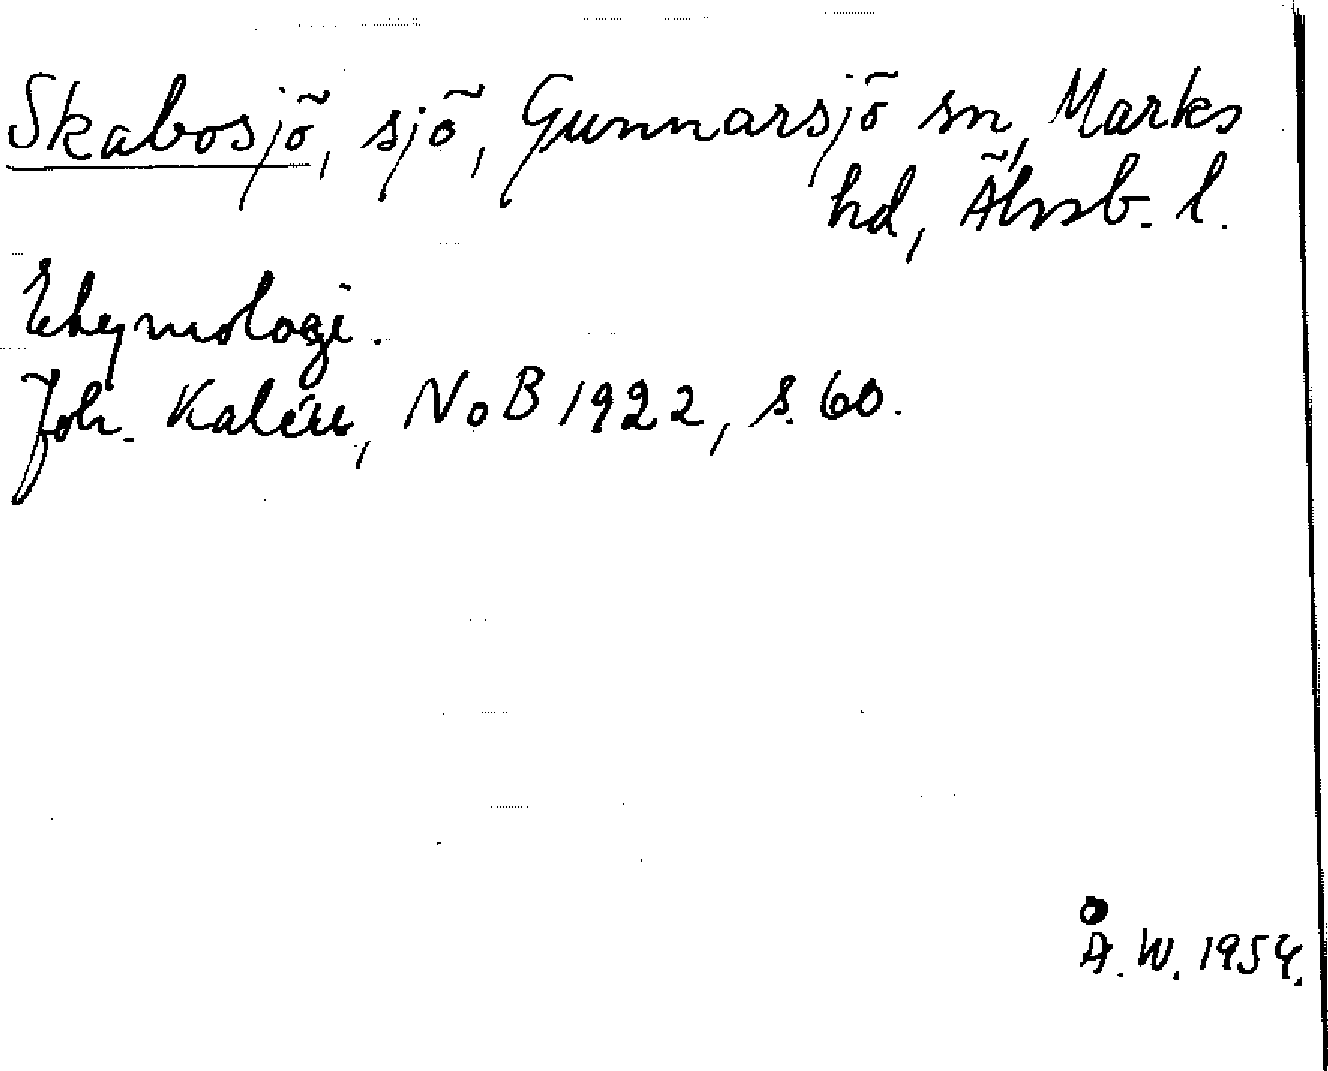 Skabosjö, sjö, Gunnarsjö sn, Marks
hd, Älvsb. l.
Etymologi.
Joh. Kalén, NoB 1922, s. 60.
Å. W. 1954.